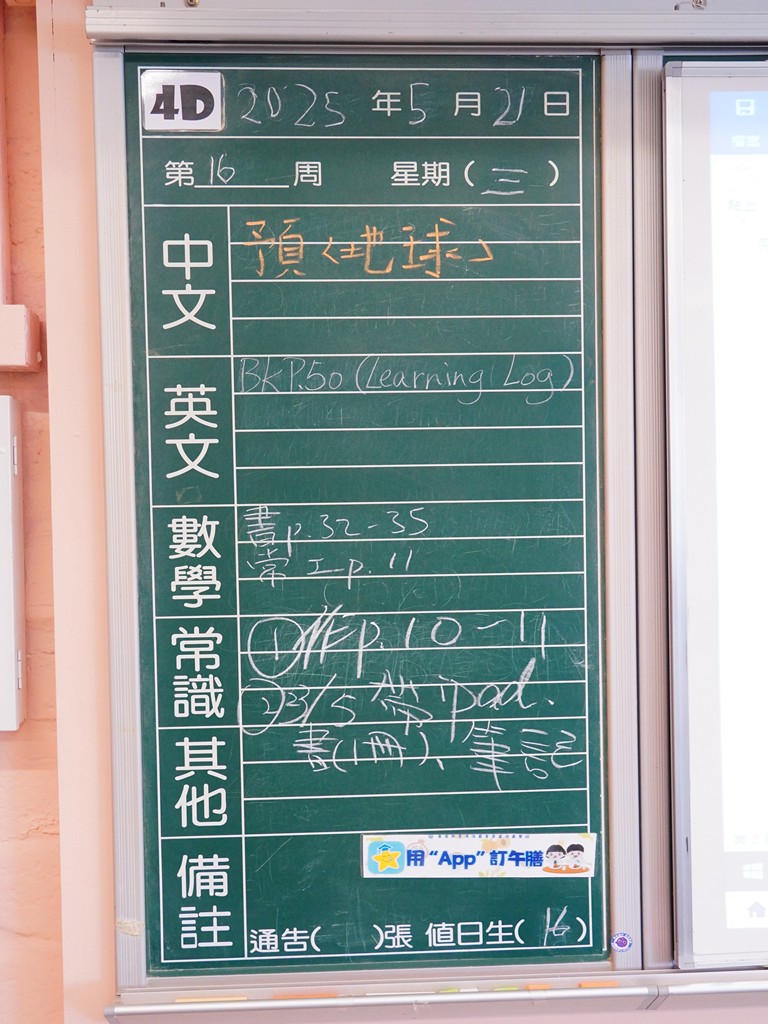 4D 2025年5月21日
第16周 星期(三)
中文
預〈地球〉
英文
BkP.50 (Learning Log)
數學
書p.32-35
常工p.11
常識
①作p.10-11
②23/5 帶ipad、
書(1冊)、筆記
其他
備註
用“App”訂午膳
通告( )張 值日生(16)